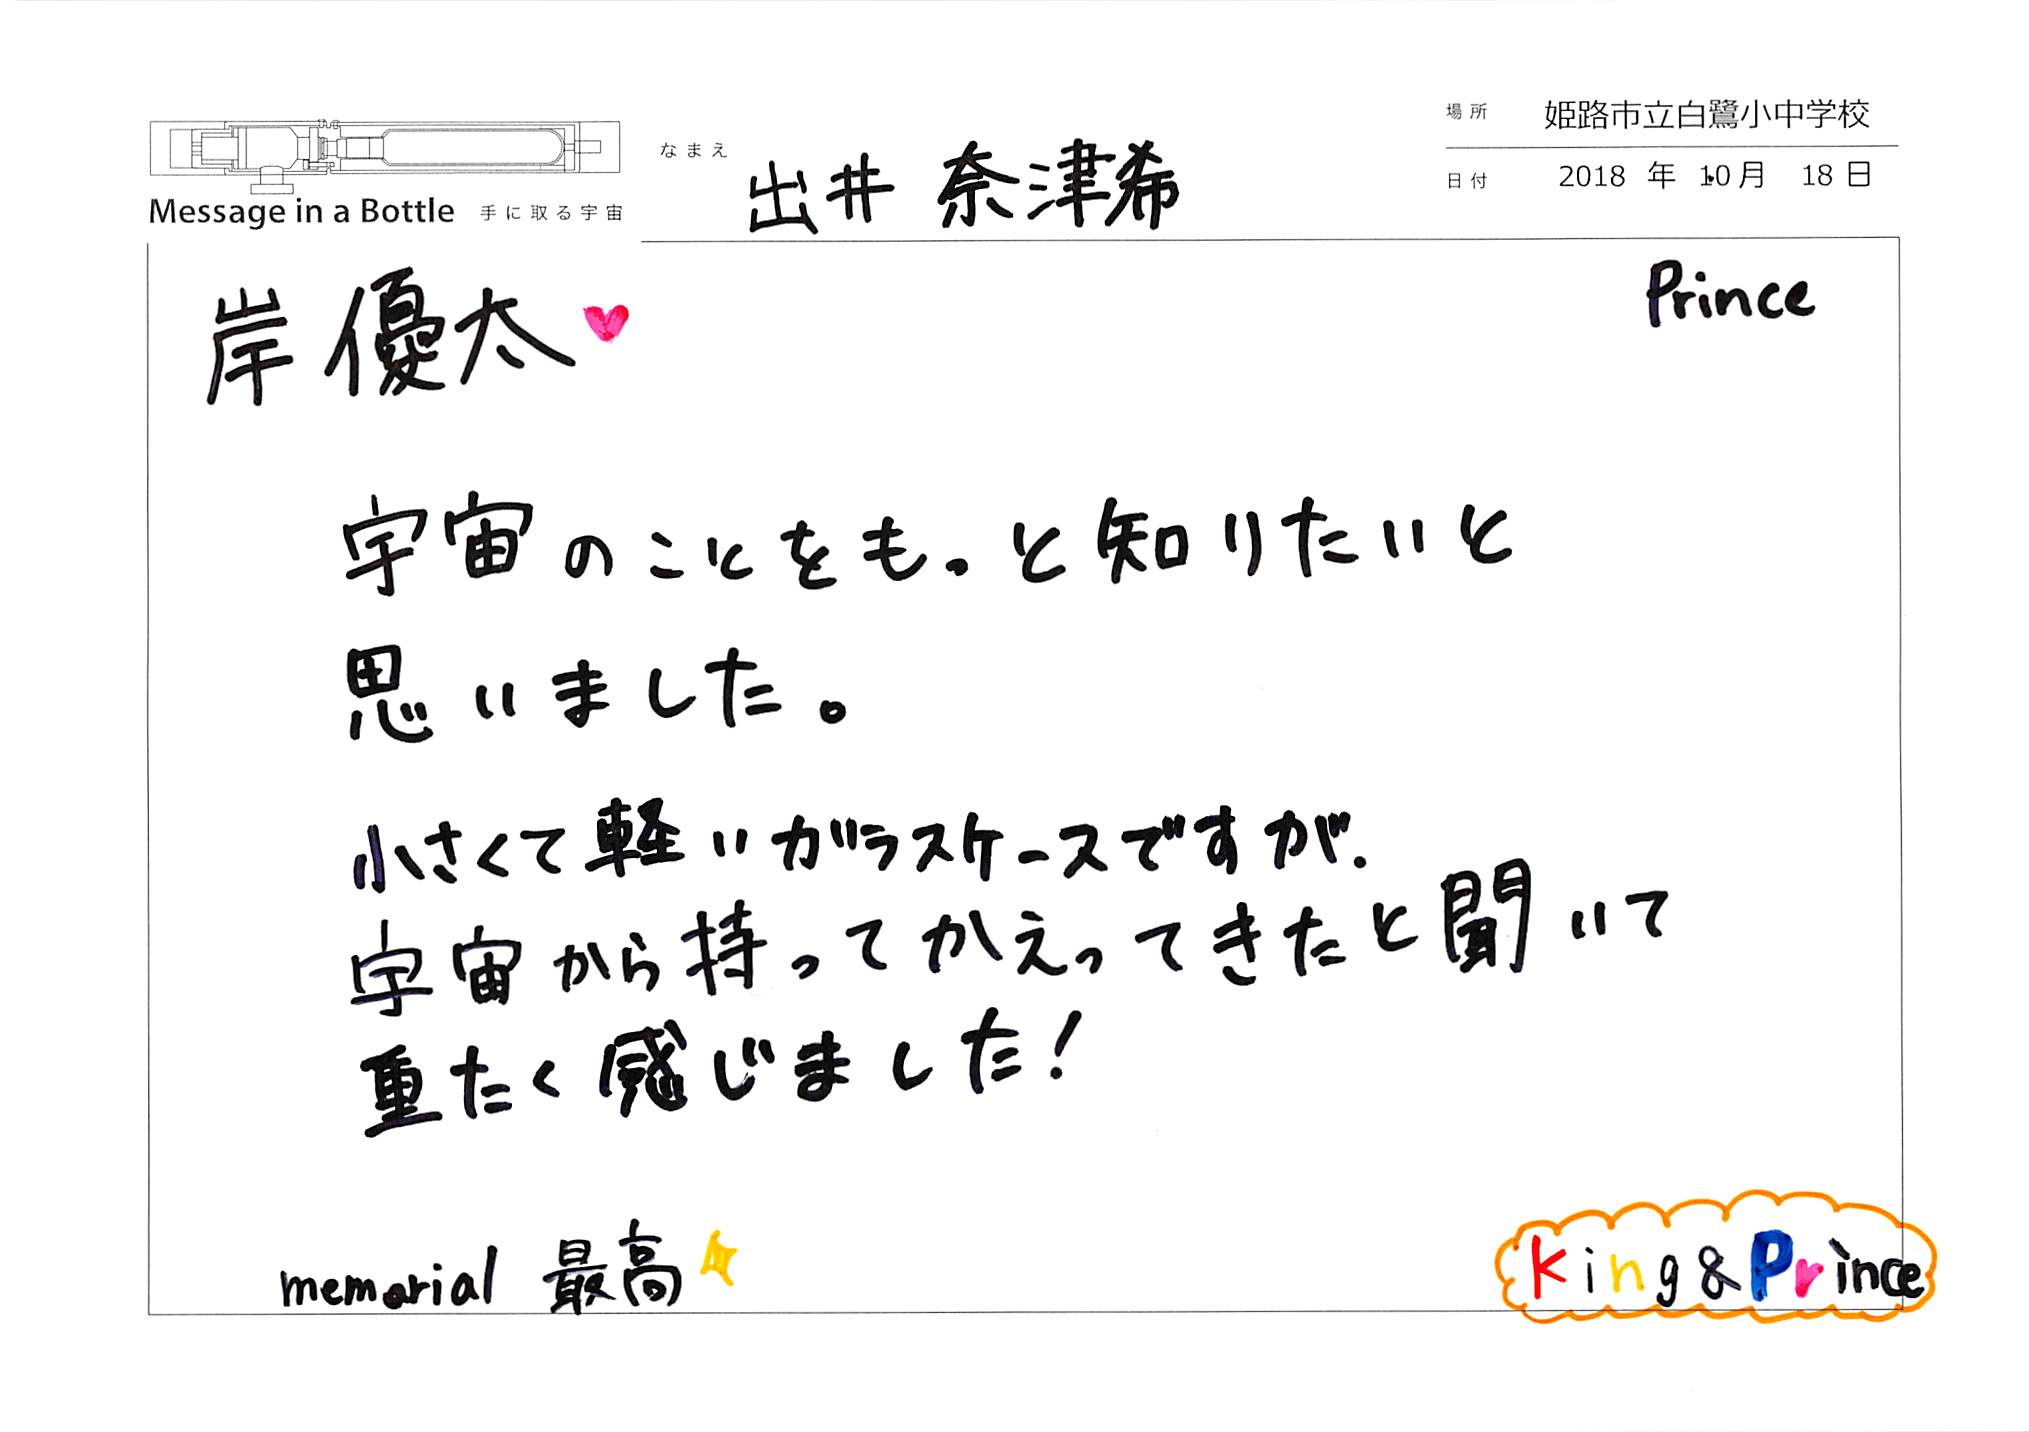 場所 姫路市立白鷺小中学校
なまえ 出井 奈津希
日付 2018 年 10月 18日
Message in a Bottle 手に取る宇宙
岸 優太
Prince
宇宙のことをもっと知りたいと
思いました。
小さくて軽いガラスケースですが、
宇宙から持ってかえってきたと聞いて
重たく感じました!
memorial 最高
King & Prince